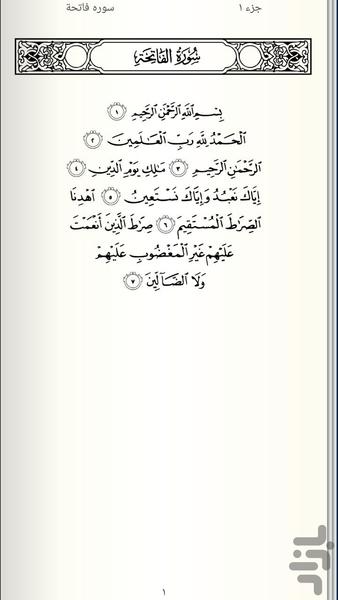 جزء ۱
سوره فاتحة
سُورَةُ الفَاتِحَةِ
بِسْمِ اللَّهِ الرَّحْمَٰنِ الرَّحِيمِ ۱
الْحَمْدُ لِلَّهِ رَبِّ الْعَالَمِينَ ۲
الرَّحْمَٰنِ الرَّحِيمِ ۳ مَالِكِ يَوْمِ الدِّينِ ۴
إِيَّاكَ نَعْبُدُ وَإِيَّاكَ نَسْتَعِينُ ۵ اهْدِنَا
الصِّرَاطَ الْمُسْتَقِيمَ ۶ صِرَاطَ الَّذِينَ أَنْعَمْتَ
عَلَيْهِمْ غَيْرِ الْمَغْضُوبِ عَلَيْهِمْ
وَلَا الضَّالِّينَ ۷
بازار
۱